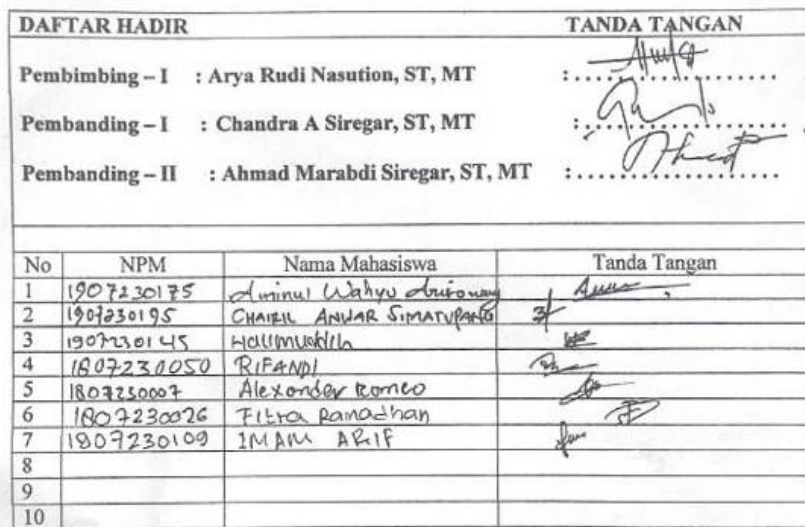 DAFTAR HADIR TANDA TANGAN
Pembimbing – I : Arya Rudi Nasution, ST, MT :....................
Pembanding – I : Chandra A Siregar, ST, MT :....................
Pembanding – II : Ahmad Marabdi Siregar, ST, MT :....................
No NPM Nama Mahasiswa Tanda Tangan
1 1907230175 Aminul Wahyu
2 1907230195 CHAIRIL ANWAR SIMATUPANG
3 1907230145 Halimuddin
4 1807230050 RIFANDI
5 1807230007 Alexander Romeo
6 1807230026 Fitra Ramadhan
7 1807230109 IMAM ARIF
8
9
10